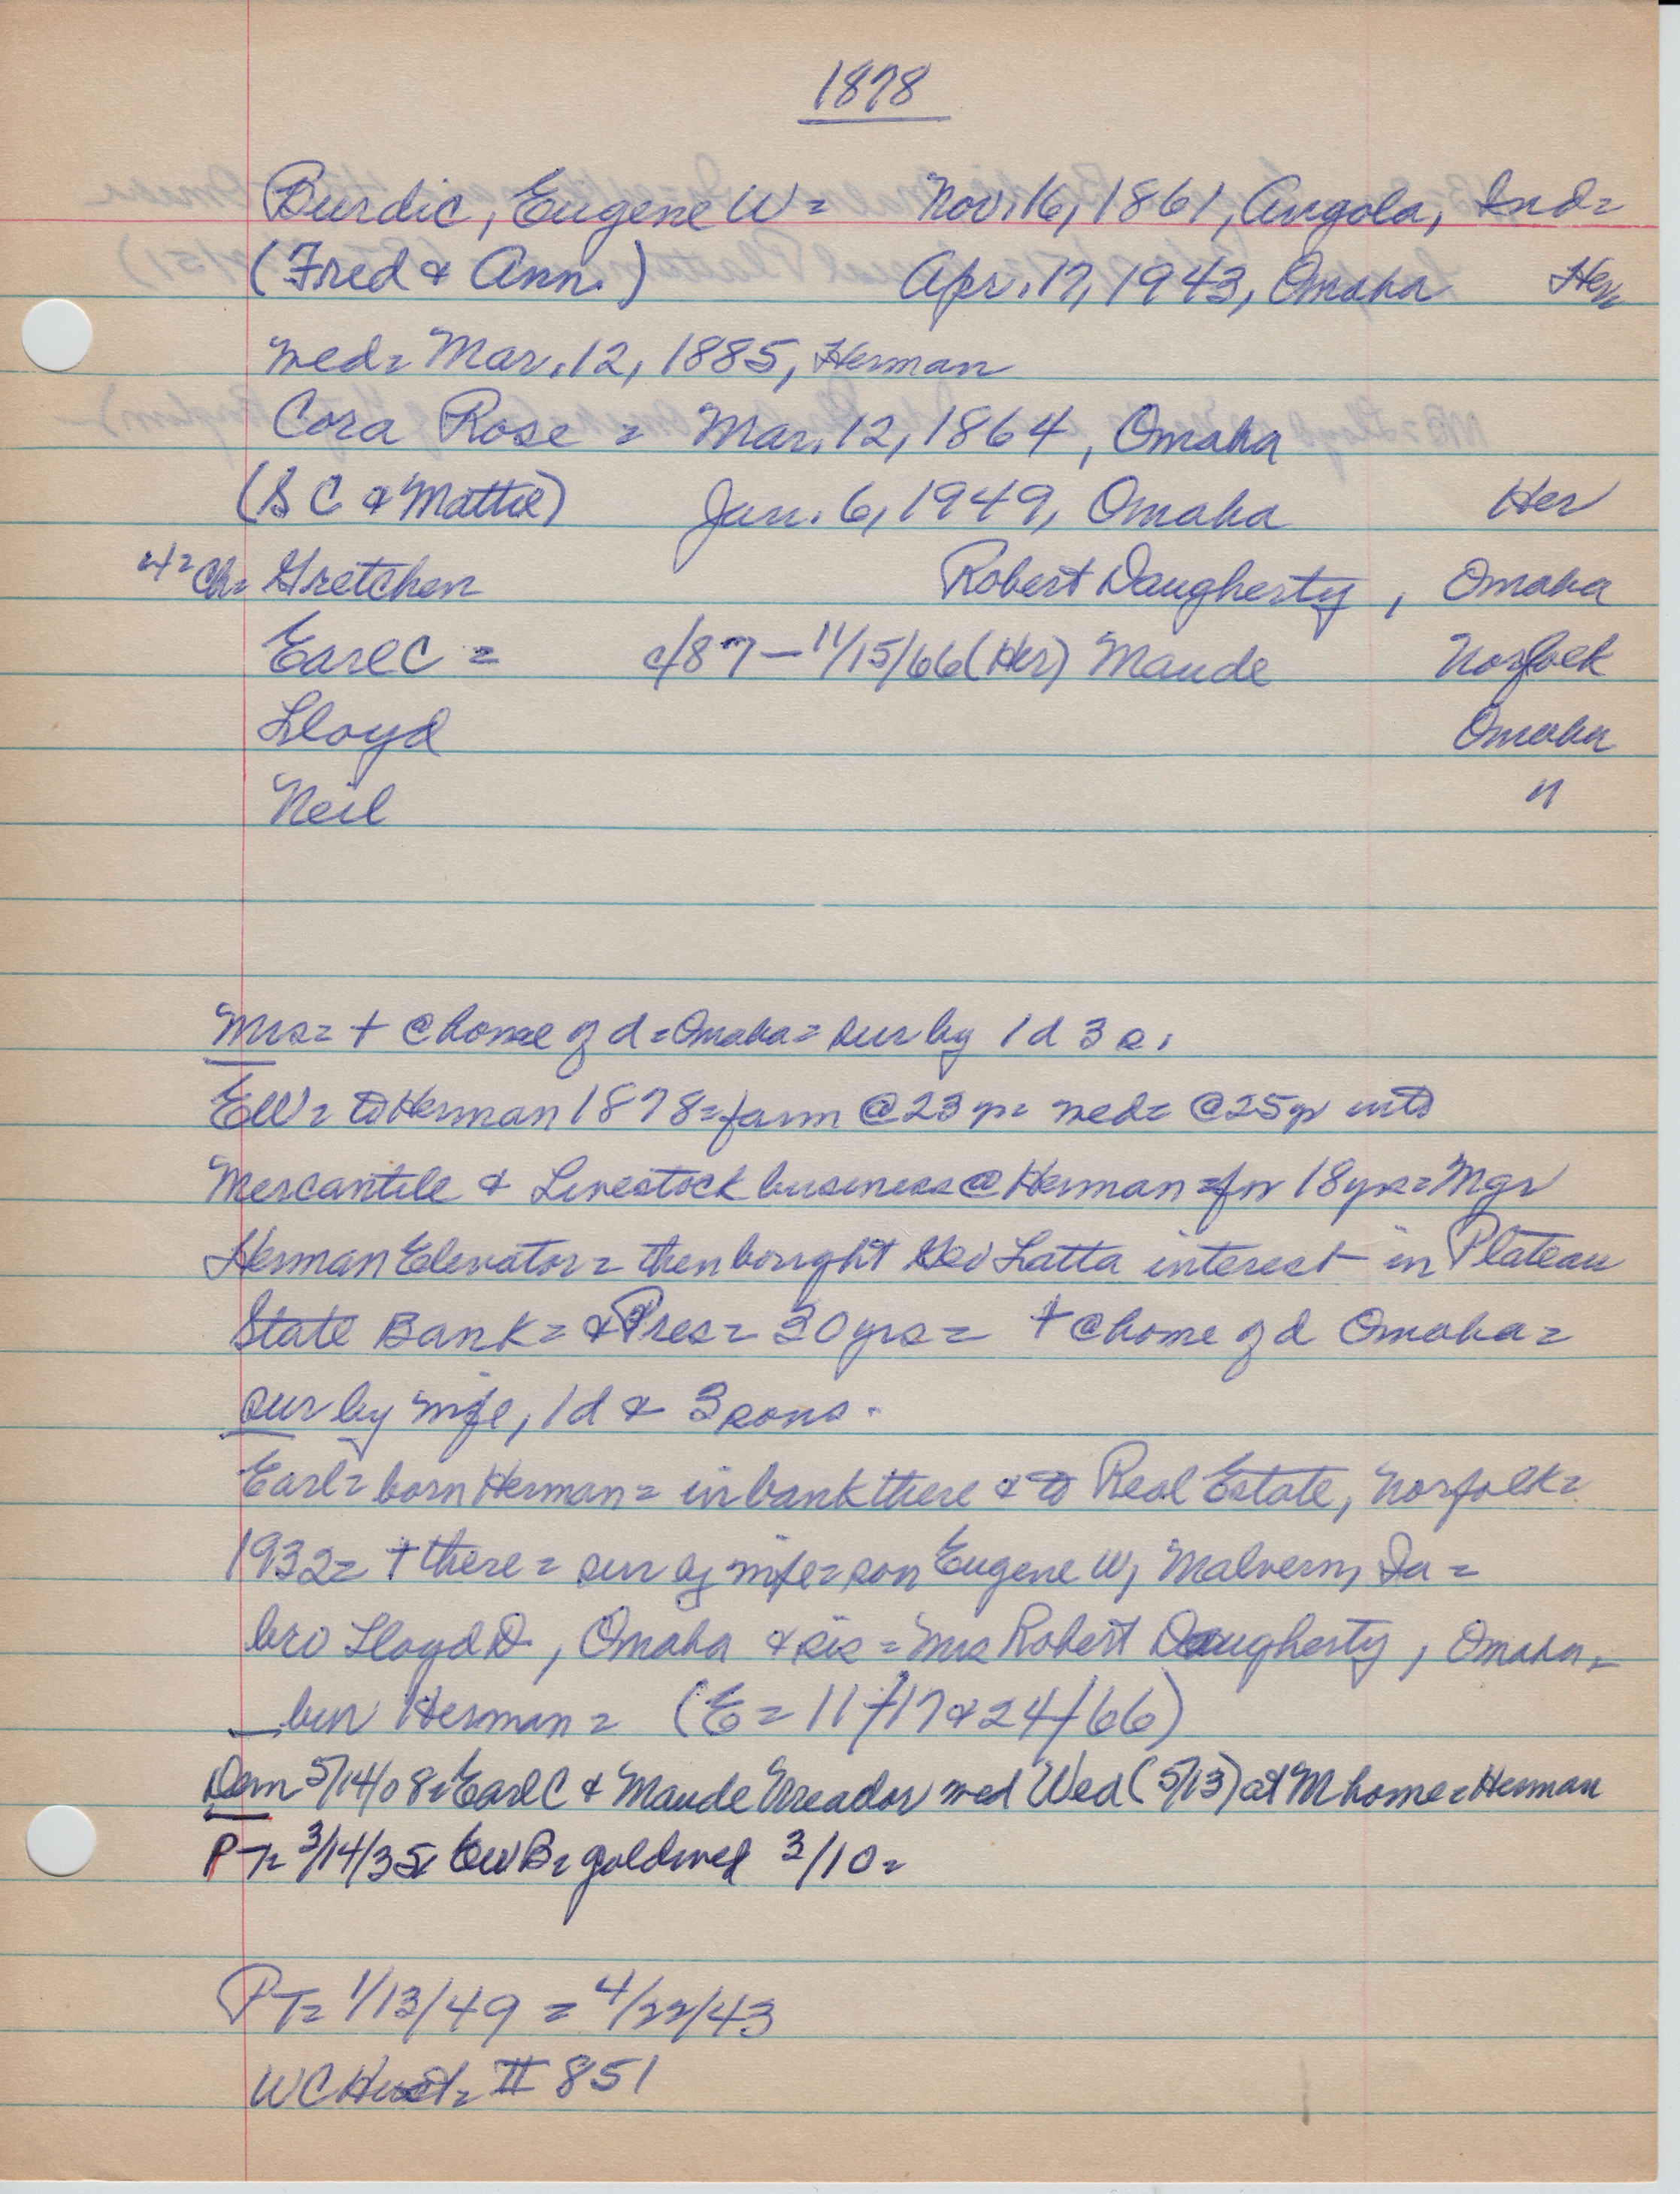 1878
Burdic, Eugene W = Nov. 16, 1861, Angola, Ind =
(Fred & Ann.) Apr. 17, 1943, Omaha Her
med = Mar. 12, 1885, Herman
Cora Rose = Mar. 12, 1864, Omaha
(S C & Mattie) Jan. 6, 1949, Omaha Her
4 = Ch = Gretchen Robert Daugherty, Omaha
Earl C = c/87 — 11/15/66 (Her) Maude Norfolk
Lloyd Omaha
Neil "
Mrs = + @ home of d = Omaha = sur by 1 d 3 s.
EW = to Herman 1878 = farm @ 23 yr = med = @ 25 yr into
Mercantile & Livestock business @ Herman = for 18 yrs = Mgr
Herman Elevator = then bought Geo Latta interest in Plateau
State Bank = & Pres = 30 yrs = + @ home of d Omaha =
sur by wife, 1 d & 3 sons.
Earl = born Herman = in bank there & to Real Estate, Norfolk =
1932 = + there = sur by wife = son Eugene W, Malvern, Ia =
bro Lloyd D, Omaha & sis = Mrs Robert Daugherty, Omaha =
bur Herman = (E = 11/17 & 24/66)
Dem 5/14/08 = Earl C & Maude med Wed (5/13) at M home = Herman
PT = 3/14/35 = EW B = gold wed 3/10 =
PT = 1/13/49 = 4/22/43
WC Hist = II 851